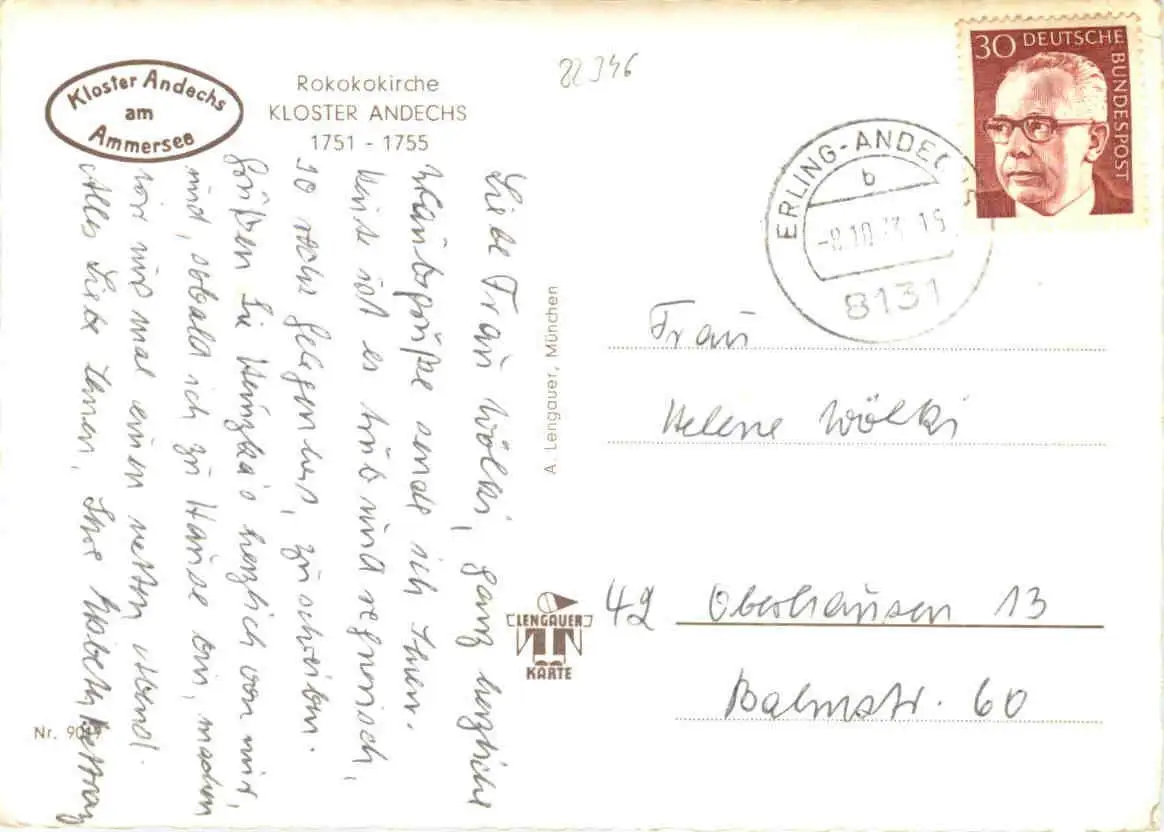 Kloster Andechs
am
Ammersee
Rokokokirche
KLOSTER ANDECHS
1751 - 1755
22346
30 DEUTSCHE
BUNDESPOST
ERLING-ANDECHS
b
-8.10.73.15
8131
Liebe Frau Wölki, ganz herzliche
Urlaubsgrüße sende ich Ihnen.
Heute ist es trüb und regnerisch,
so recht Gelegenheit, zu schreiben.
Grüßen Sie herzlich von mir,
und, sobald ich zu Hause bin, machen
wir uns mal einen netten Abend.
Alles Liebe Ihnen, Ihre
A. Lengauer, München
Frau
Helene Wölki
42 Oberhausen 13
Balmstr. 60
LENGAUER
KARTE
Nr. 9019